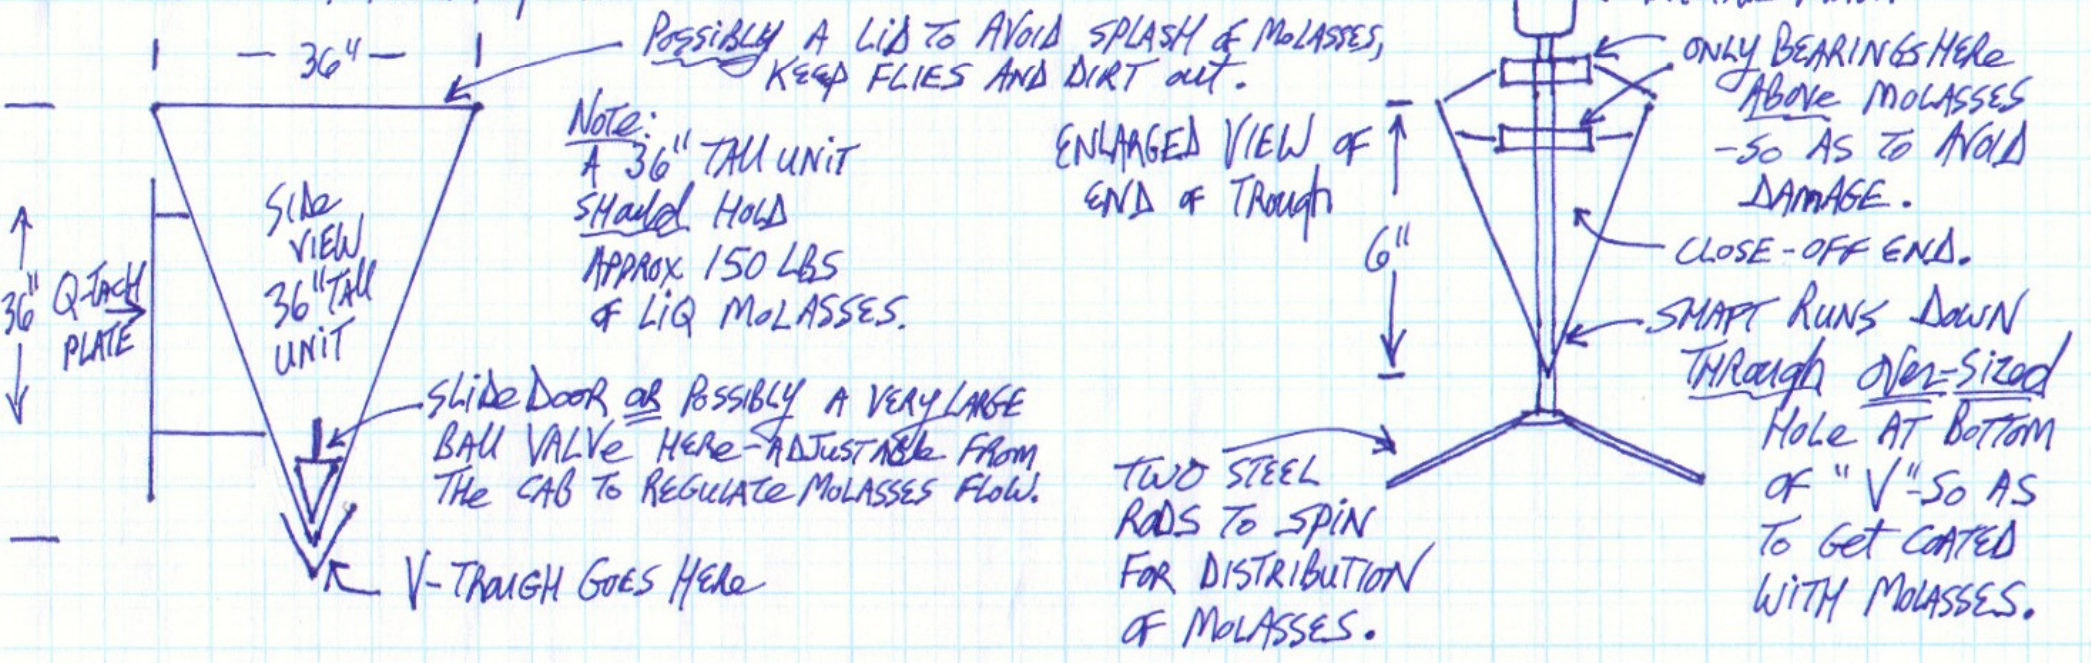 36"
POSSIBLY A LID TO AVOID SPLASH OF MOLASSES,
KEEP FLIES AND DIRT OUT.
NOTE:
A 36" TALL UNIT
SHOULD HOLD
APPROX 150 LBS
OF LIQ MOLASSES.
SIDE
VIEW
36" TALL
UNIT
36"
Q-TACH
PLATE
SLIDE DOOR OR POSSIBLY A VERY LARGE
BALL VALVE HERE-ADJUSTABLE FROM
THE CAB TO REGULATE MOLASSES FLOW.
V-TROUGH GOES HERE
ENLARGED VIEW OF
END OF TROUGH
6"
ONLY BEARINGS HERE
ABOVE MOLASSES
-SO AS TO AVOID
DAMAGE.
CLOSE-OFF END.
SHAFT RUNS DOWN
THROUGH OVER-SIZED
HOLE AT BOTTOM
OF "V"-SO AS
TO GET COATED
WITH MOLASSES.
TWO STEEL
RODS TO SPIN
FOR DISTRIBUTION
OF MOLASSES.